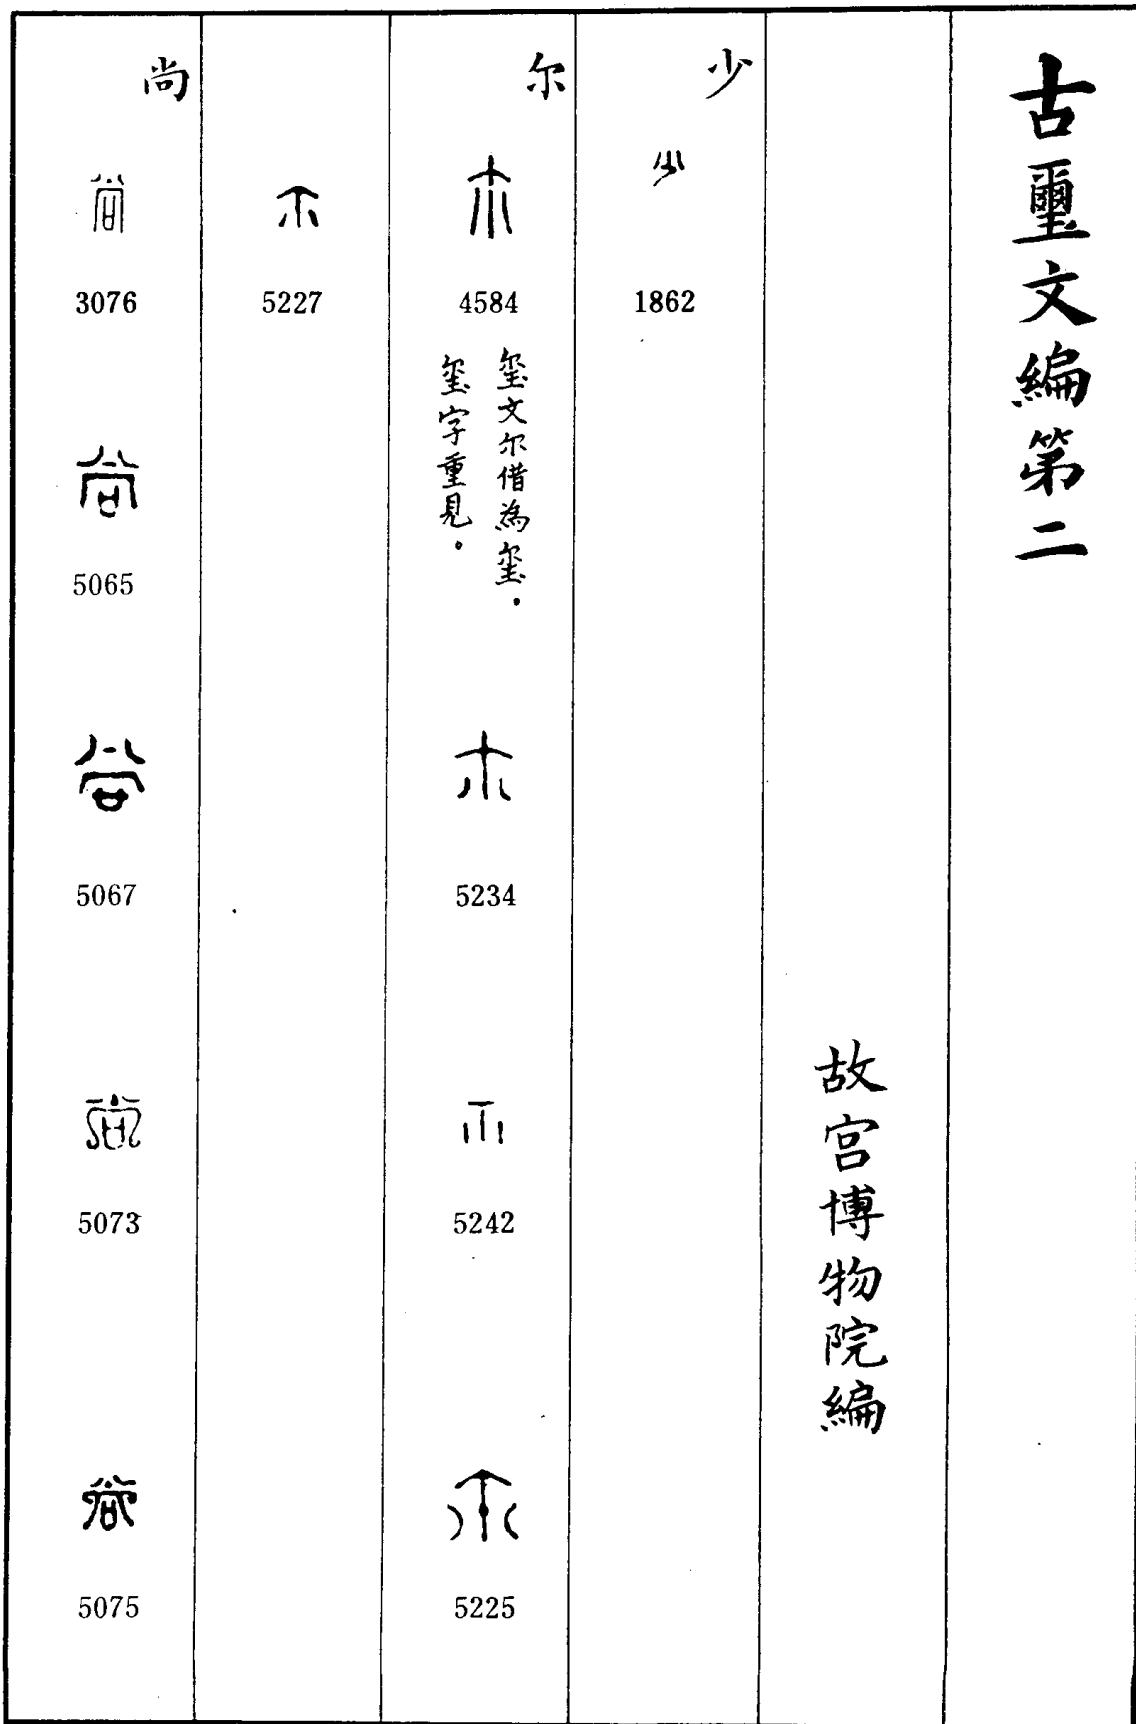 古璽文編第二
故宮博物院編
少
1862
尔
4584
壐文尔借為壐．
壐字重見。
5234
5242
5225
5227
尚
3076
5065
5067
5073
5075